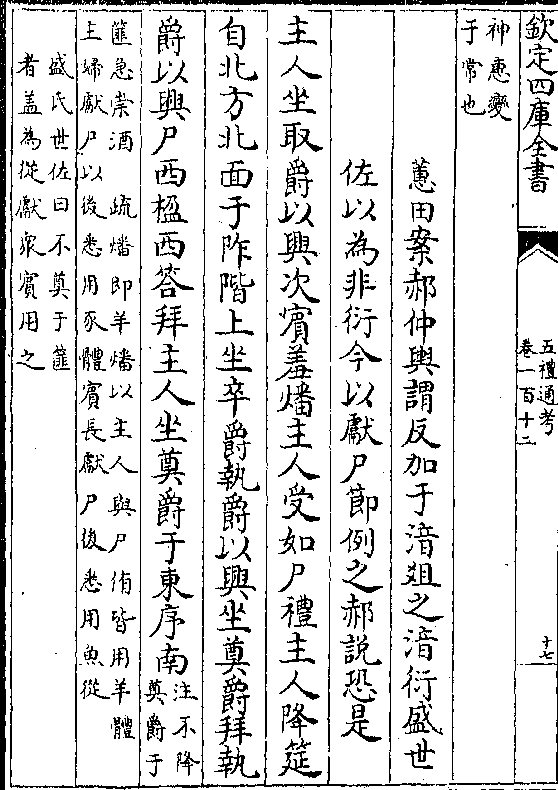 欽定四庫全書
五禮通考
卷一百十二
十七
神惠變
于常也
蕙田案郝仲輿謂反加于湆俎之湆衍盛世
佐以為非衍今以獻尸節例之郝說恐是
主人坐取爵以興次賓羞燔主人受如尸禮主人降筵
自北方北面于阼階上坐卒爵執爵以興坐奠爵拜執
爵以興尸西楹西答拜主人坐奠爵于東序南
注不降
奠爵于
篚急崇酒　疏燔即羊燔以主人與尸侑皆用羊體
主婦獻尸以後悉用豕體賓長獻尸後悉用魚從
盛氏世佐曰不奠于篚
者蓋為從獻衆賓用之